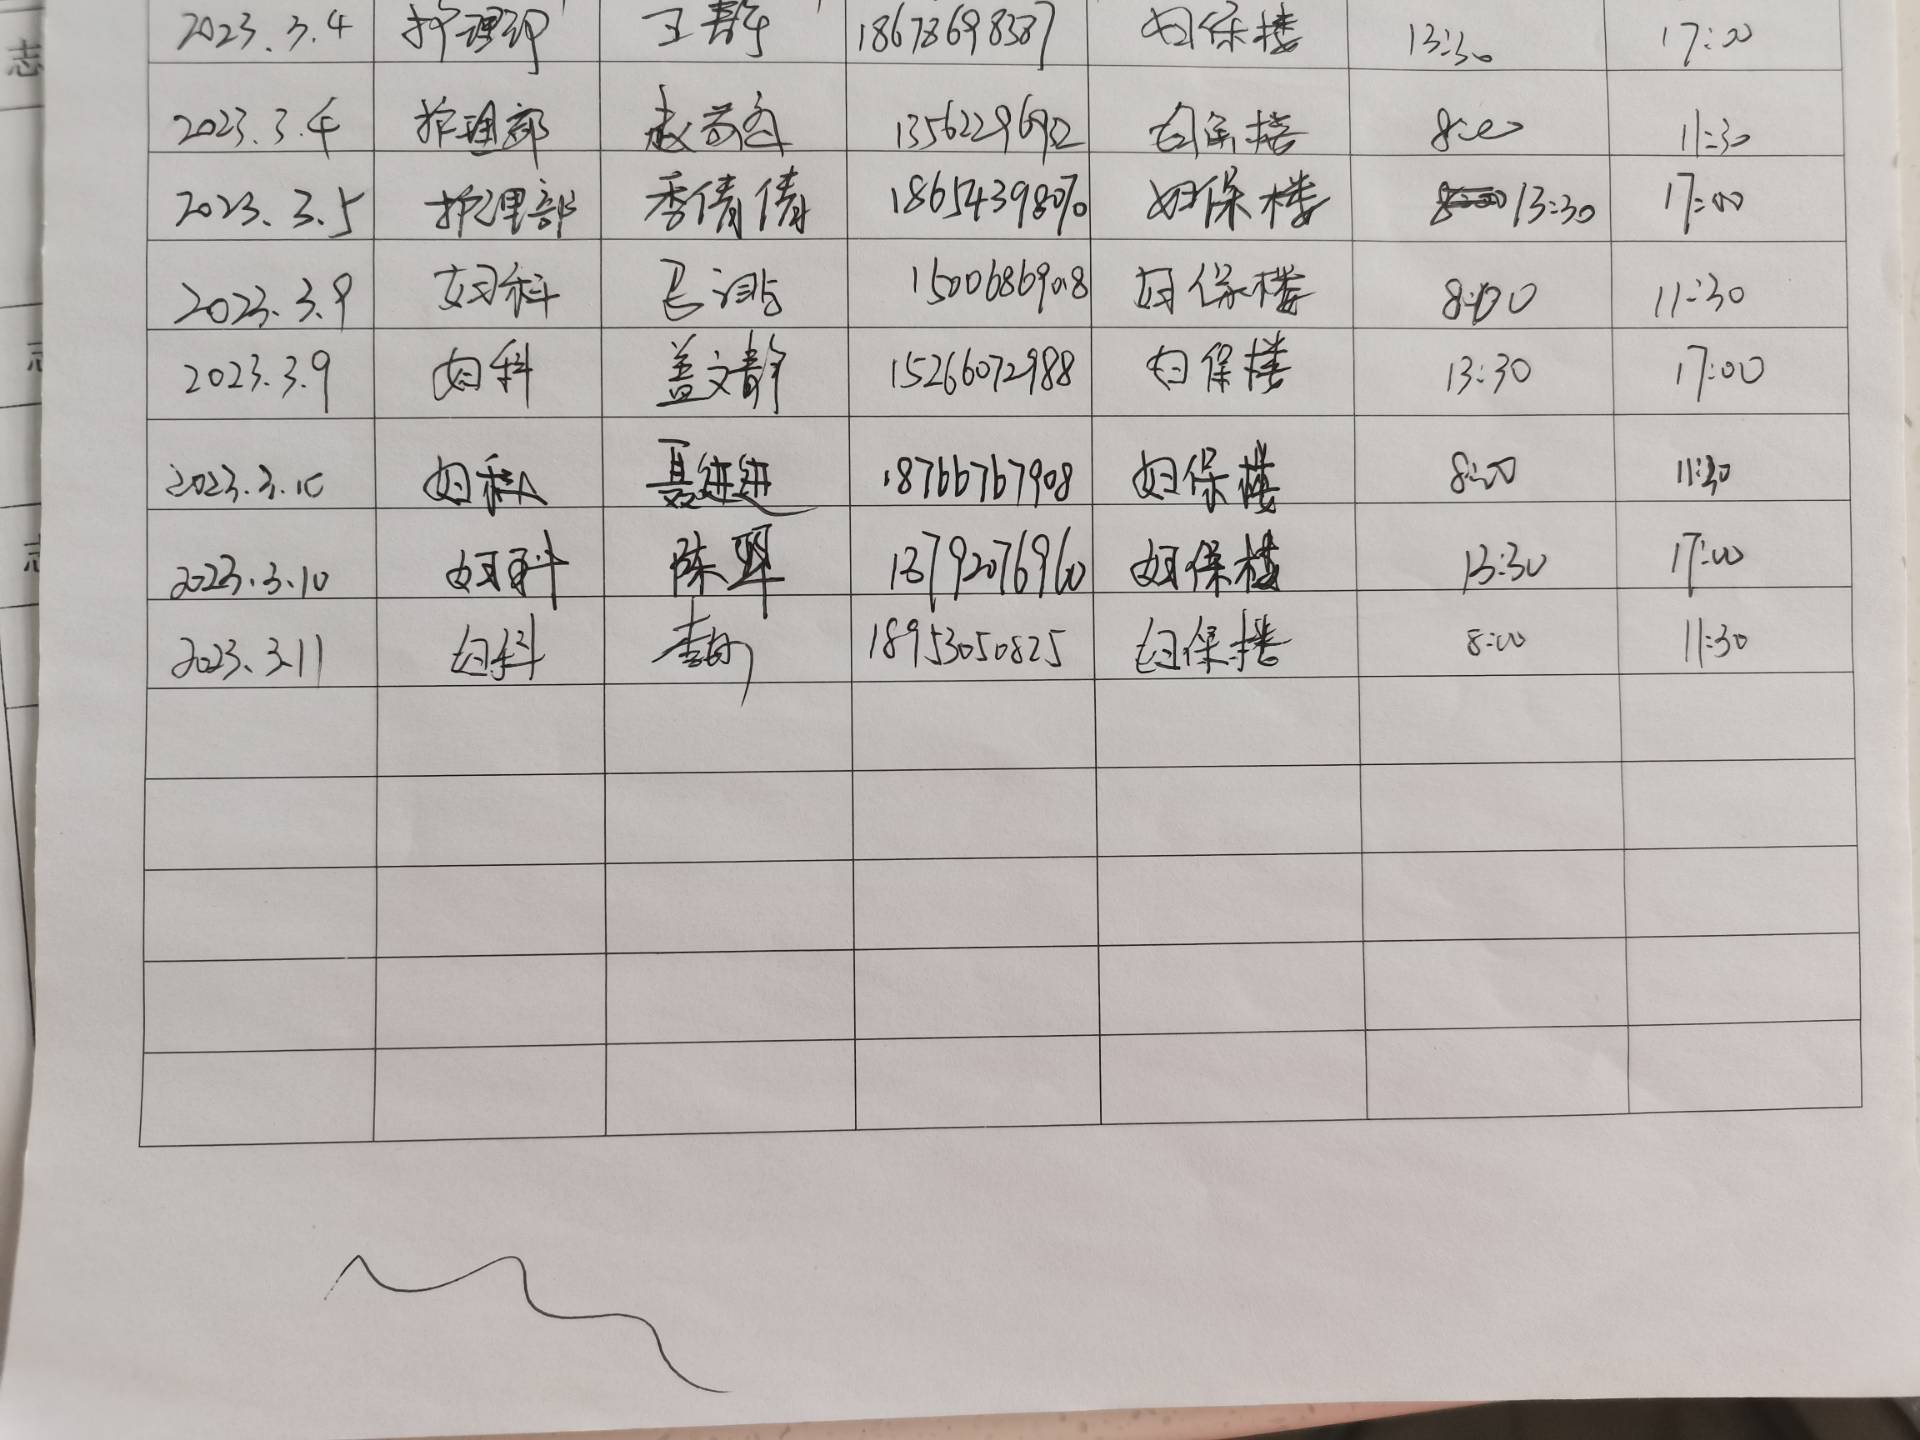 2023.3.4 护理部 王静 18678698387 妇保楼 13:30 17:00
2023.3.4 护理部 13562296992 妇保楼 8:00 11:30
2023.3.5 护理部 季倩倩 妇保楼 13:30 17:00
2023.3.9 妇科 15006869018 妇保楼 8:00 11:30
2023.3.9 妇科 盖文静 15266072988 妇保楼 13:30 17:00
2023.3.10 妇科 聂进进 18766767908 妇保楼 8:00 11:30
2023.3.10 妇科 陈翠 13792076960 妇保楼 13:30 17:00
2023.3.11 妇科 18953050825 妇保楼 8:00 11:30
志
志
志